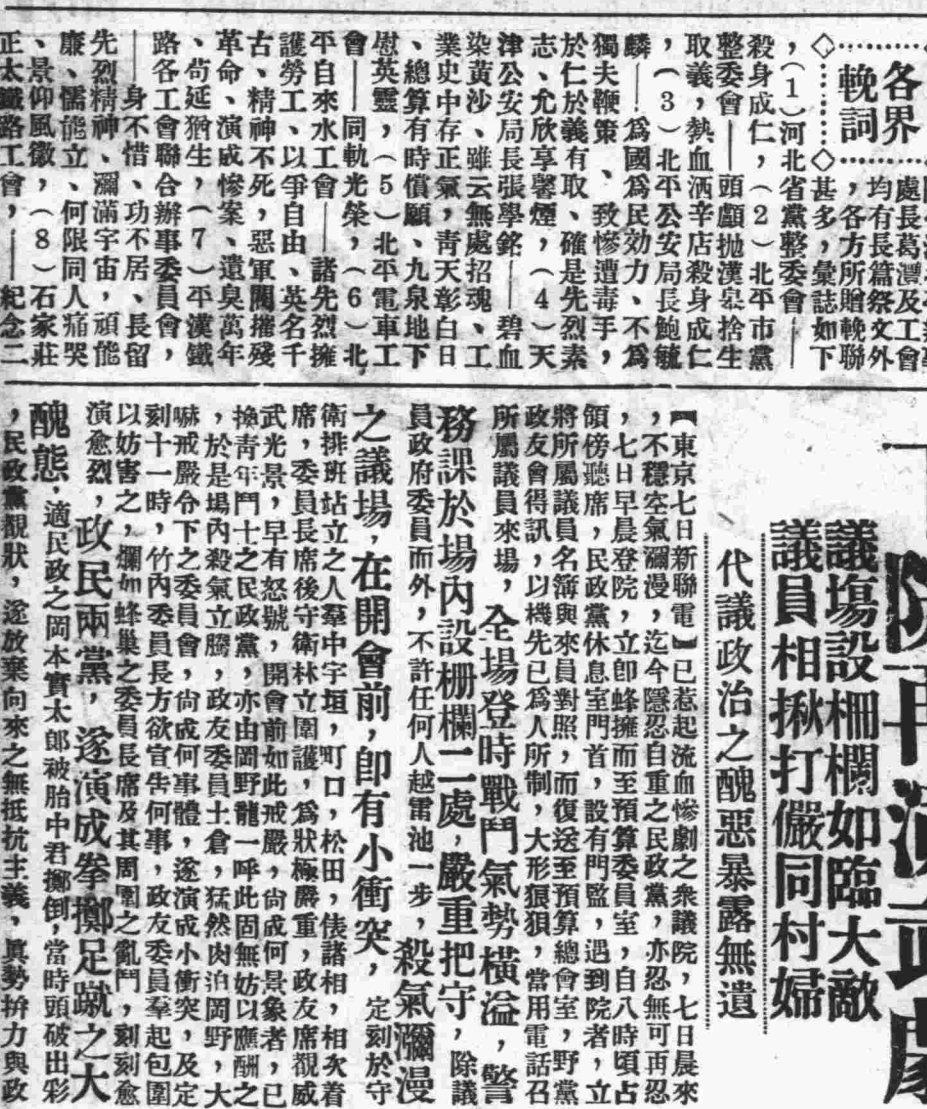 各界
輓詞
處長葛灃及工會
均有長篇祭文外
，各方所贈輓聯
甚多，彙誌如下
，（1）河北省黨整委會——
殺身成仁，（2）北平市黨
整委會——頭顱拋漢皐捨生
取義，熱血洒辛店殺身成仁
，（3）北平公安局長鮑毓
麟——爲國爲民効力、不爲
獨夫鞭策、致慘遭毒手，
於仁於義有取、確是先烈素
志、允欣享馨煙，（4）天
津公安局長張學銘——碧血
染黃沙、雖云無處招魂、工
業史中存正氣，靑天彰白日
、總算有時償願、九泉地下
慰英靈，（5）北平電車工
會——同軌光榮，（6）北
平自來水工會——諸先烈擁
護勞工、以爭自由、英名千
古、精神不死，惡軍閥摧殘
革命、演成慘案、遺臭萬年
、尙延猶生，（7）平漢鐵
路各工會聯合辦事委員會，
——身不惜、功不居、長留
先烈精神、瀰滿宇宙，頑能
廉、懦能立、何限同人痛哭
、景仰風徽，（8）石家莊
正太鐵路工會，——紀念二
議場設柵欄如臨大敵
議員相揪打儼同村婦
代議政治之醜惡暴露無遺
【東京七日新聯電】已惹起流血慘劇之衆議院，七日晨來
，不穩空氣瀰漫，迄今隱忍自重之民政黨，亦忍無可再忍
，七日早晨登院，立卽蜂擁而至預算委員室，自八時頃占
領傍聽席，民政黨休息室門首，設有門監，遇到院者，立
將所屬議員名簿與來員對照，而復送至預算總會室，野黨
政友會得訊，以機先已爲人所制，大形狼狽，當用電話召
所屬議員來場，全場登時戰鬥氣勢橫溢，警
務課於場內設柵欄二處，嚴重把守，除議
員政府委員而外，不許任何人越雷池一步，殺氣瀰漫
之議場，在開會前，卽有小衝突，定刻於守
衛排班站立之人羣中宇垣，町口，松田，俵諸相，相次着
席，委員長席後守衛林立圍護，爲狀極嚴重，政友席覩威
武光景，早有怒號，開會前如此戒嚴，尙成何景象者，已
換靑年鬥士之民政黨，亦由岡野龍一呼此固無妨以應酬之
，於是場內殺氣立騰，政友委員土倉，猛然肉泊岡野，大
嚇戒嚴令下之委員會，尙成何事體，遂演成小衝突，及定
刻十一時，竹內委員長方欲宣告何事，政友委員羣起包圍
以妨害之，爛如蜂巢之委員長席及其周圍之亂鬥，刻刻愈
演愈烈，政民兩黨，遂演成拳擲足蹴之大
醜態，適民政之岡本實太郎被胎中君擲倒，當時頭破出彩
，民政黨覩狀，遂放棄向來之無抵抗主義，眞勢拚力與政